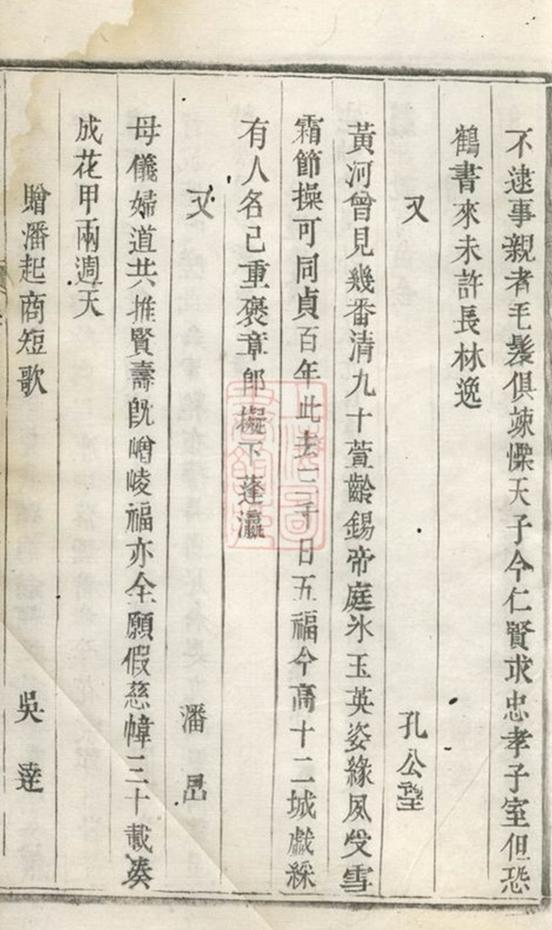 不逮事親者毛髮俱竦慄天子今仁賢求忠孝子室但恐
鶴書來未許長林逸
又 孔公
黃河曾見幾番清九十萱齡錫帝庭氷玉英姿緣夙受雪
霜節操可同貞百年此去三千日五福今髙十二城戲綵
有人名已重褒章卽擬下蓬瀛
又 潘
母儀婦道共推賢壽旣嶒崚福亦全願假慈幃三十載凑
成花甲兩週天
贈潘起商短歌 吳逹